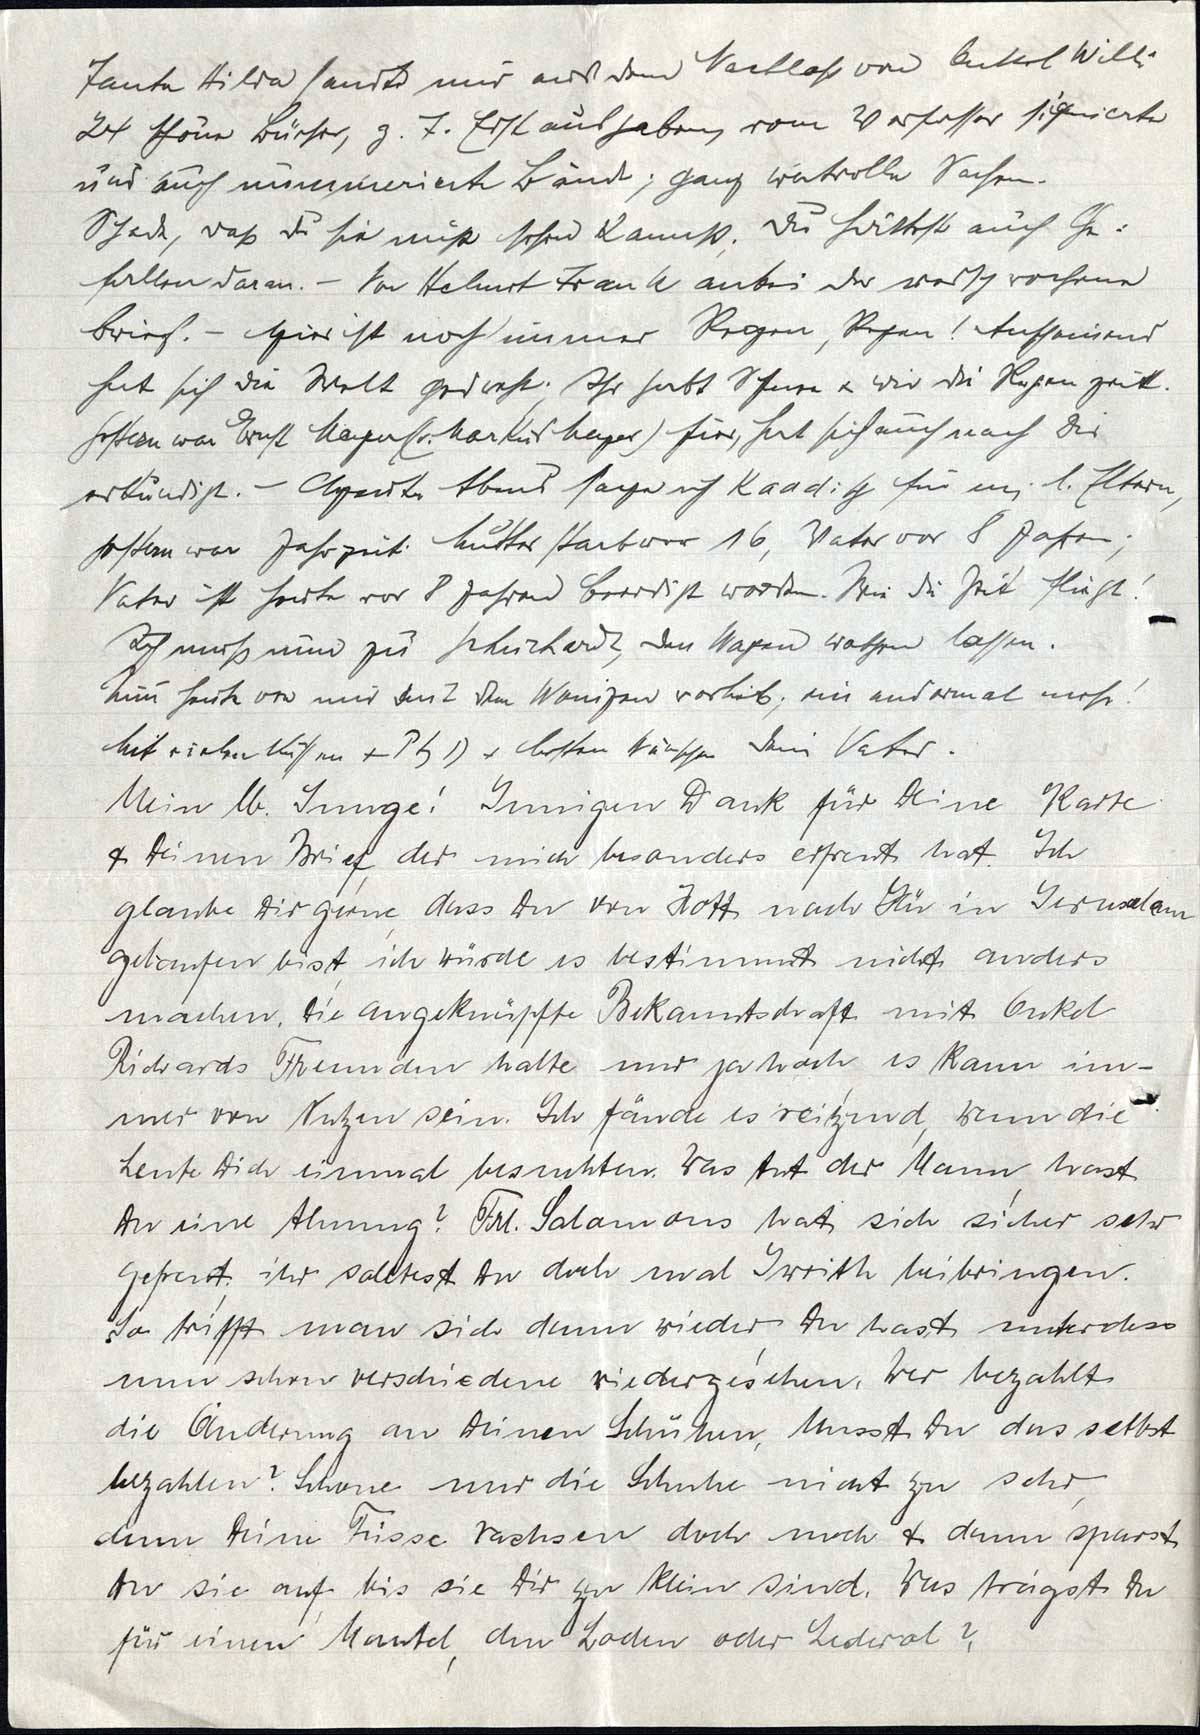 Tante Hilda sandte mir aus dem Nachlaß von Onkel Willi
24 schöne Bücher, z. T. Erstausgaben, vom Verfasser signierte
und auch nummerierte Bände; ganz wertvolle Sachen.
Schade, daß Du sie nicht sehen kannst, Du hättest auch Ge-
fallen daran. – Von Helmut Frank anbei der
Brief. – Hier ist noch immer Regen, Regen! Anscheinend
hat sich die Welt gedreht; Ihr habt Schnee & wir die Regenzeit.
Gestern war Ernst Mayer (v. Markus Mayer) hier, hat sich auch nach Dir
erkundigt. – Heute Abend sage ich Kaddisch für m. l. Eltern,
gestern war Jahrzeit. Mutter starb vor 16, Vater vor 8 Jahren;
Vater ist heute vor 8 Jahren beerdigt worden. Wie die Zeit fliegt!
Ich muß nun zu Schuchardt, den Wagen waschen lassen.
Nun heute von mir mit dem Wenigen vorlieb; ein andermal mehr!
Mit vielen Küssen + + besten Wünschen Dein Vater.
Mein lb. Junge! Innigen Dank für Deine Karte
& Deinen Brief, der mich besonders erfreut hat. Ich
glaube Dir gerne, dass Du von Hott nach Hü in Jerusalem
gelaufen bist, ich würde es bestimmt nicht anders
machen. Die angeknüpfte Bekanntschaft mit Onkel
Richards Freunden halte nur ja hoch es kann im-
mer von Nutzen sein. Ich fände es reitzend, wenn die
Leute Dich einmal besuchten. Was tut der Mann hast
Du eine Ahnung? Frl. Salamons hat sich sicher sehr
gefreut, ihr solltest Du doch mal Iwrith beibringen.
So trifft man sich dann wieder Du hast unterdess
nun schon verschiedene wiedergesehen. Wer bezahlt
die Änderung an Deinen Schuhen, Musst Du das selbst
bezahlen? Schone nur die Schuhe nicht zu sehr,
denn Deine Füsse wachsen doch noch & dann sparst
Du sie auf bis sie Dir zu klein sind. Was trägst Du
für einen Mantel, den Loden oder Lederol?